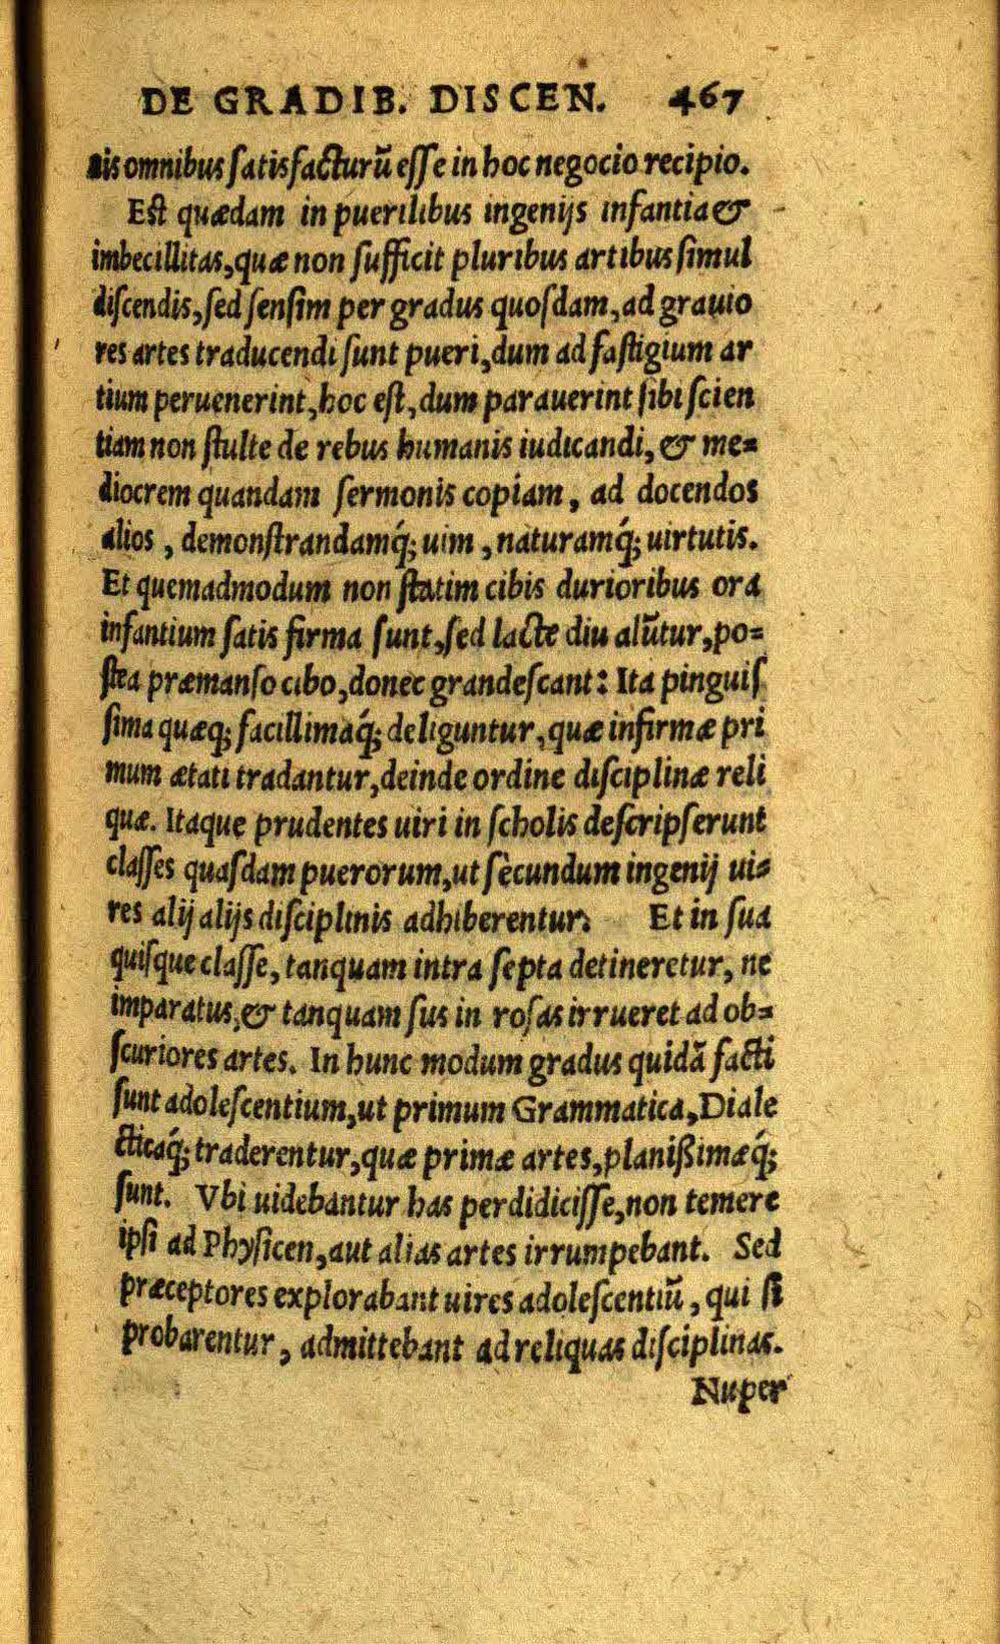 DE GRADIB. DISCEN. 467
nis omnibus satisfacturũ esse in hoc negocio recipio.
Est quædam in puerilibus ingenijs infantia &
imbecillitas, quæ non sufficit pluribus artibus simul
discendis, sed sensim per gradus quosdam, ad grauio
res artes traducendi sunt pueri, dum ad fastigium ar
tium peruenerint, hoc est, dum parauerint sibi scien
tiam non stulte de rebus humanis iudicandi, & me=
diocrem quandam sermonis copiam, ad docendos
alios, demonstrandamq́; uim, naturamq́; uirtutis.
Et quemadmodum non statim cibis durioribus ora
infantium satis firma sunt, sed lacte diu alũtur, po=
stea præmanso cibo, donec grandescant: Ita pinguis
sima quæq; facillimaq́; deliguntur, quæ infirmæ pri
mum ætati tradantur, deinde ordine disciplinæ reli
quæ. Itaque prudentes uiri in scholis descripserunt
classes quasdam puerorum, ut secundum ingenij ui=
res alij alijs disciplinis adhiberentur. Et in sua
quisque classe, tanquam intra septa detineretur, ne
imparatus, & tanquam sus in rosas irrueret ad ob=
scuriores artes. In hunc modum gradus quidã facti
sunt adolescentium, ut primum Grammatica, Diale
cticaq́; traderentur, quæ primæ artes, planißimæq́;
sunt. Vbi uidebantur has perdidicisse, non temere
ipsi ad Physicen, aut alias artes irrumpebant. Sed
præceptores explorabant uires adolescentiũ, qui si
probarentur, admittebant ad reliquas disciplinas.
Nuper